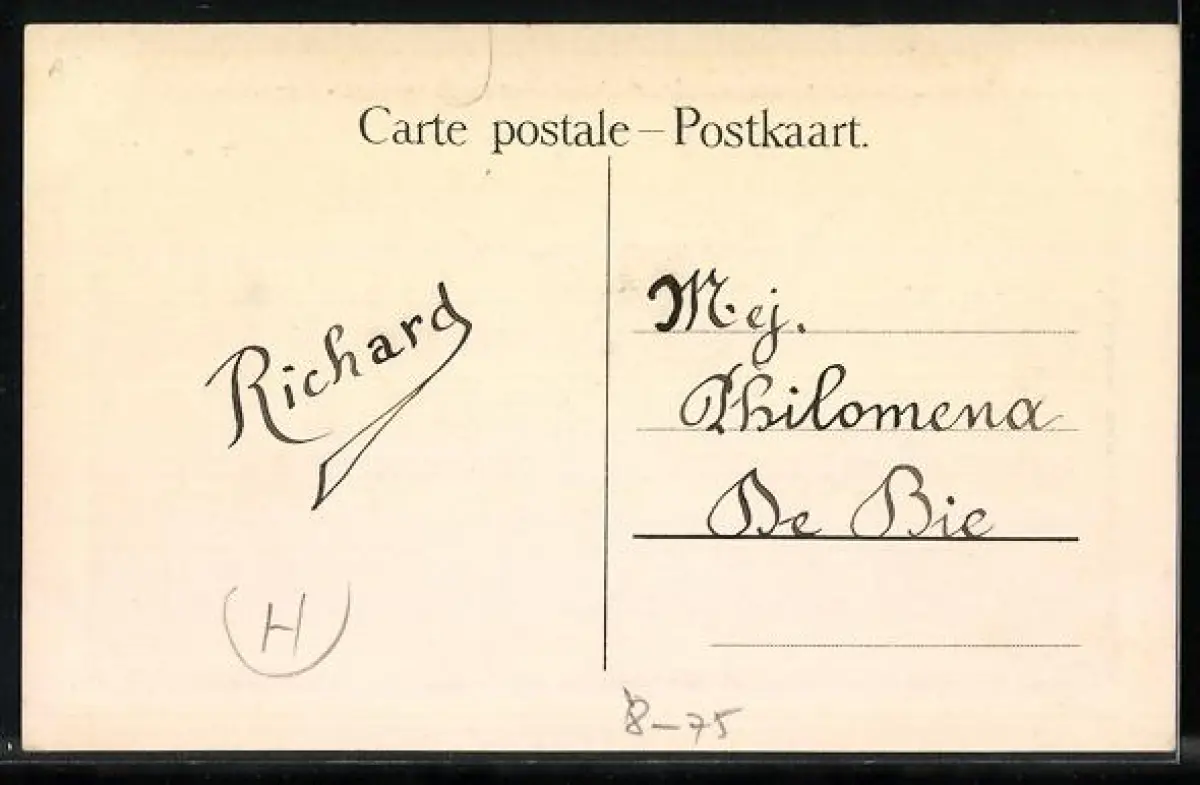 Carte postale – Postkaart.
Richard
Mej.
Philomena
De Bie
H
8-75